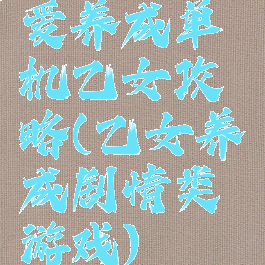 爱养成单
机乙女攻
略(乙女养
成剧情类
游戏)